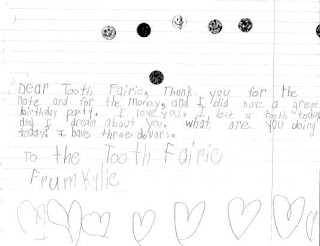 Dear Tooth Fairie, Thank you for the
note and for the money, and I did have a great
birthday party. I love you. I lost a tooth today
and I dream about you. what are you doing
today? I have three dolars.
To the Tooth Fairie
Frum Kylie